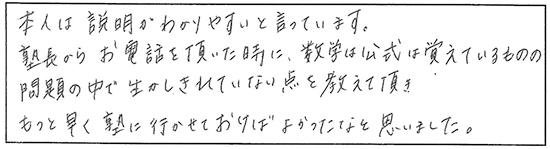 本人は説明がわかりやすいと言っています。
塾長からお電話を頂いた時に、数学は公式は覚えているものの
問題の中で生かしきれていない点を教えて頂き
もっと早く塾に行かせておけばよかったなと思いました。